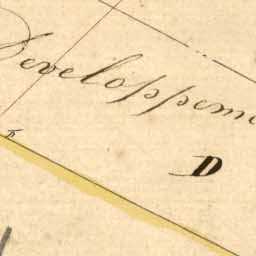 Developpeme
D